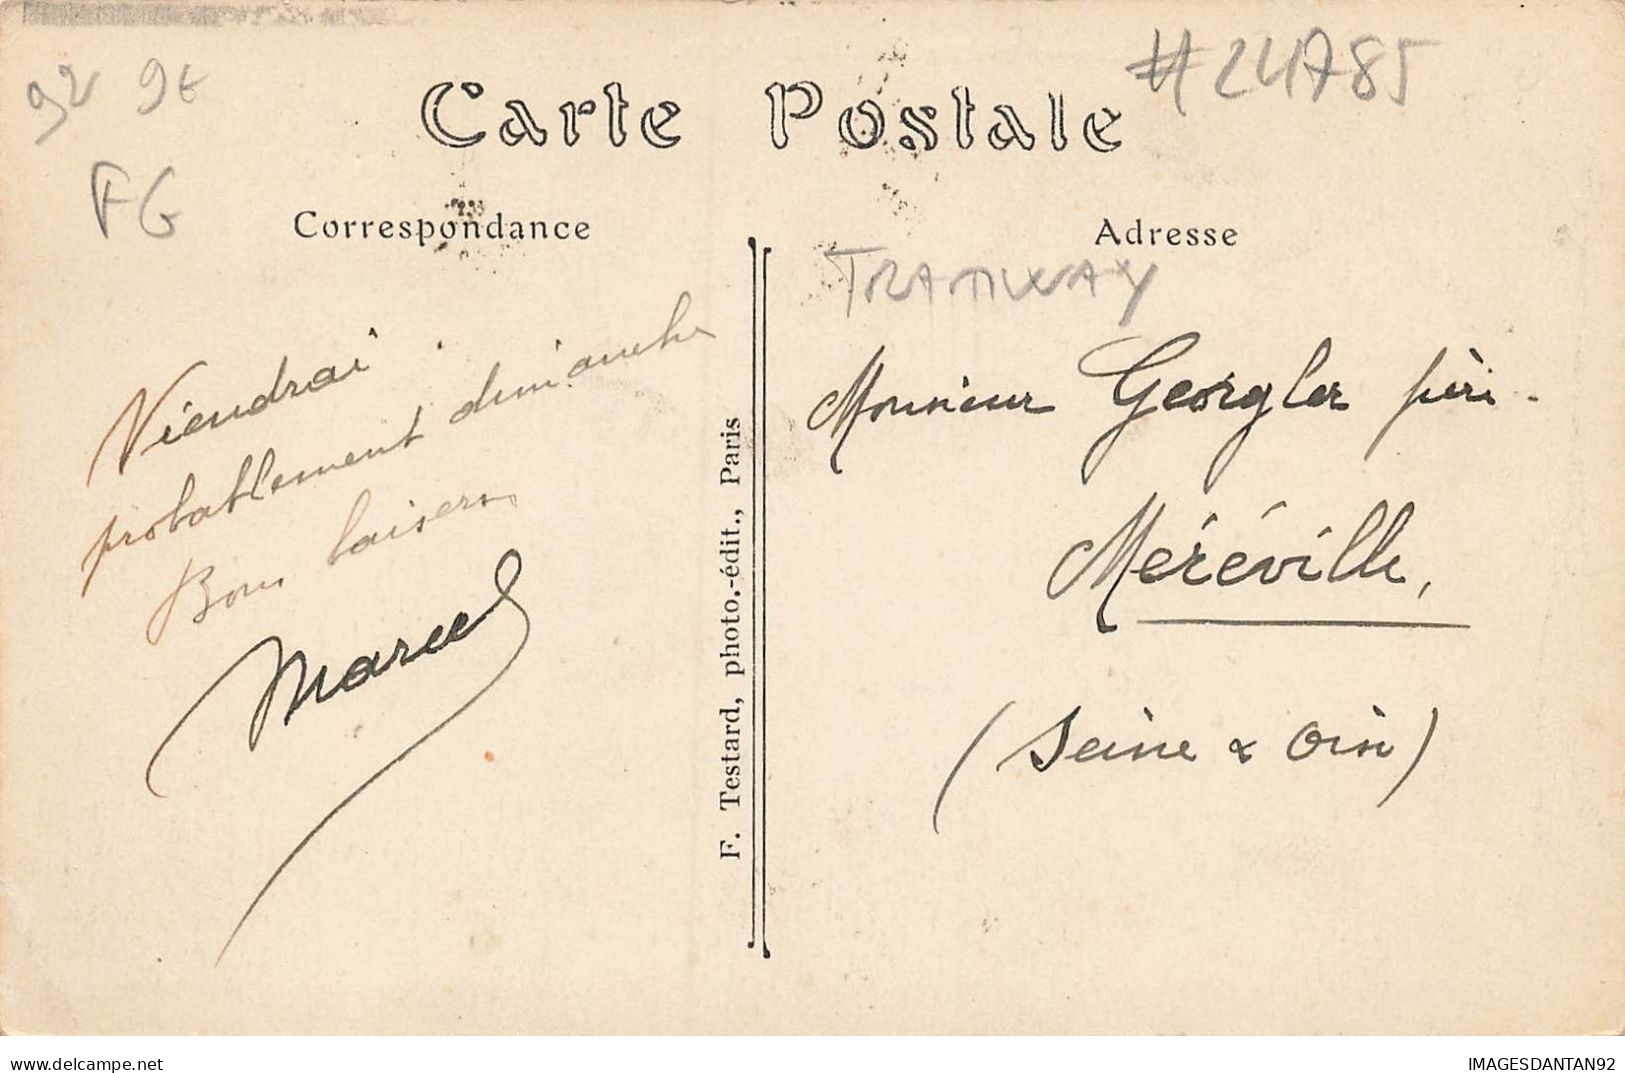 92 9E
#24785
Carte Postale
FG
Correspondance
Adresse
TRAMWAY
Viendrai
probablement dimanche
Bons baisers
Marcel
F. Testard, photo.-édit., Paris
Monsieur Georgler père.
Méréville,
(Seine & Oise)
delcampe.net
IMAGESDANTAN92